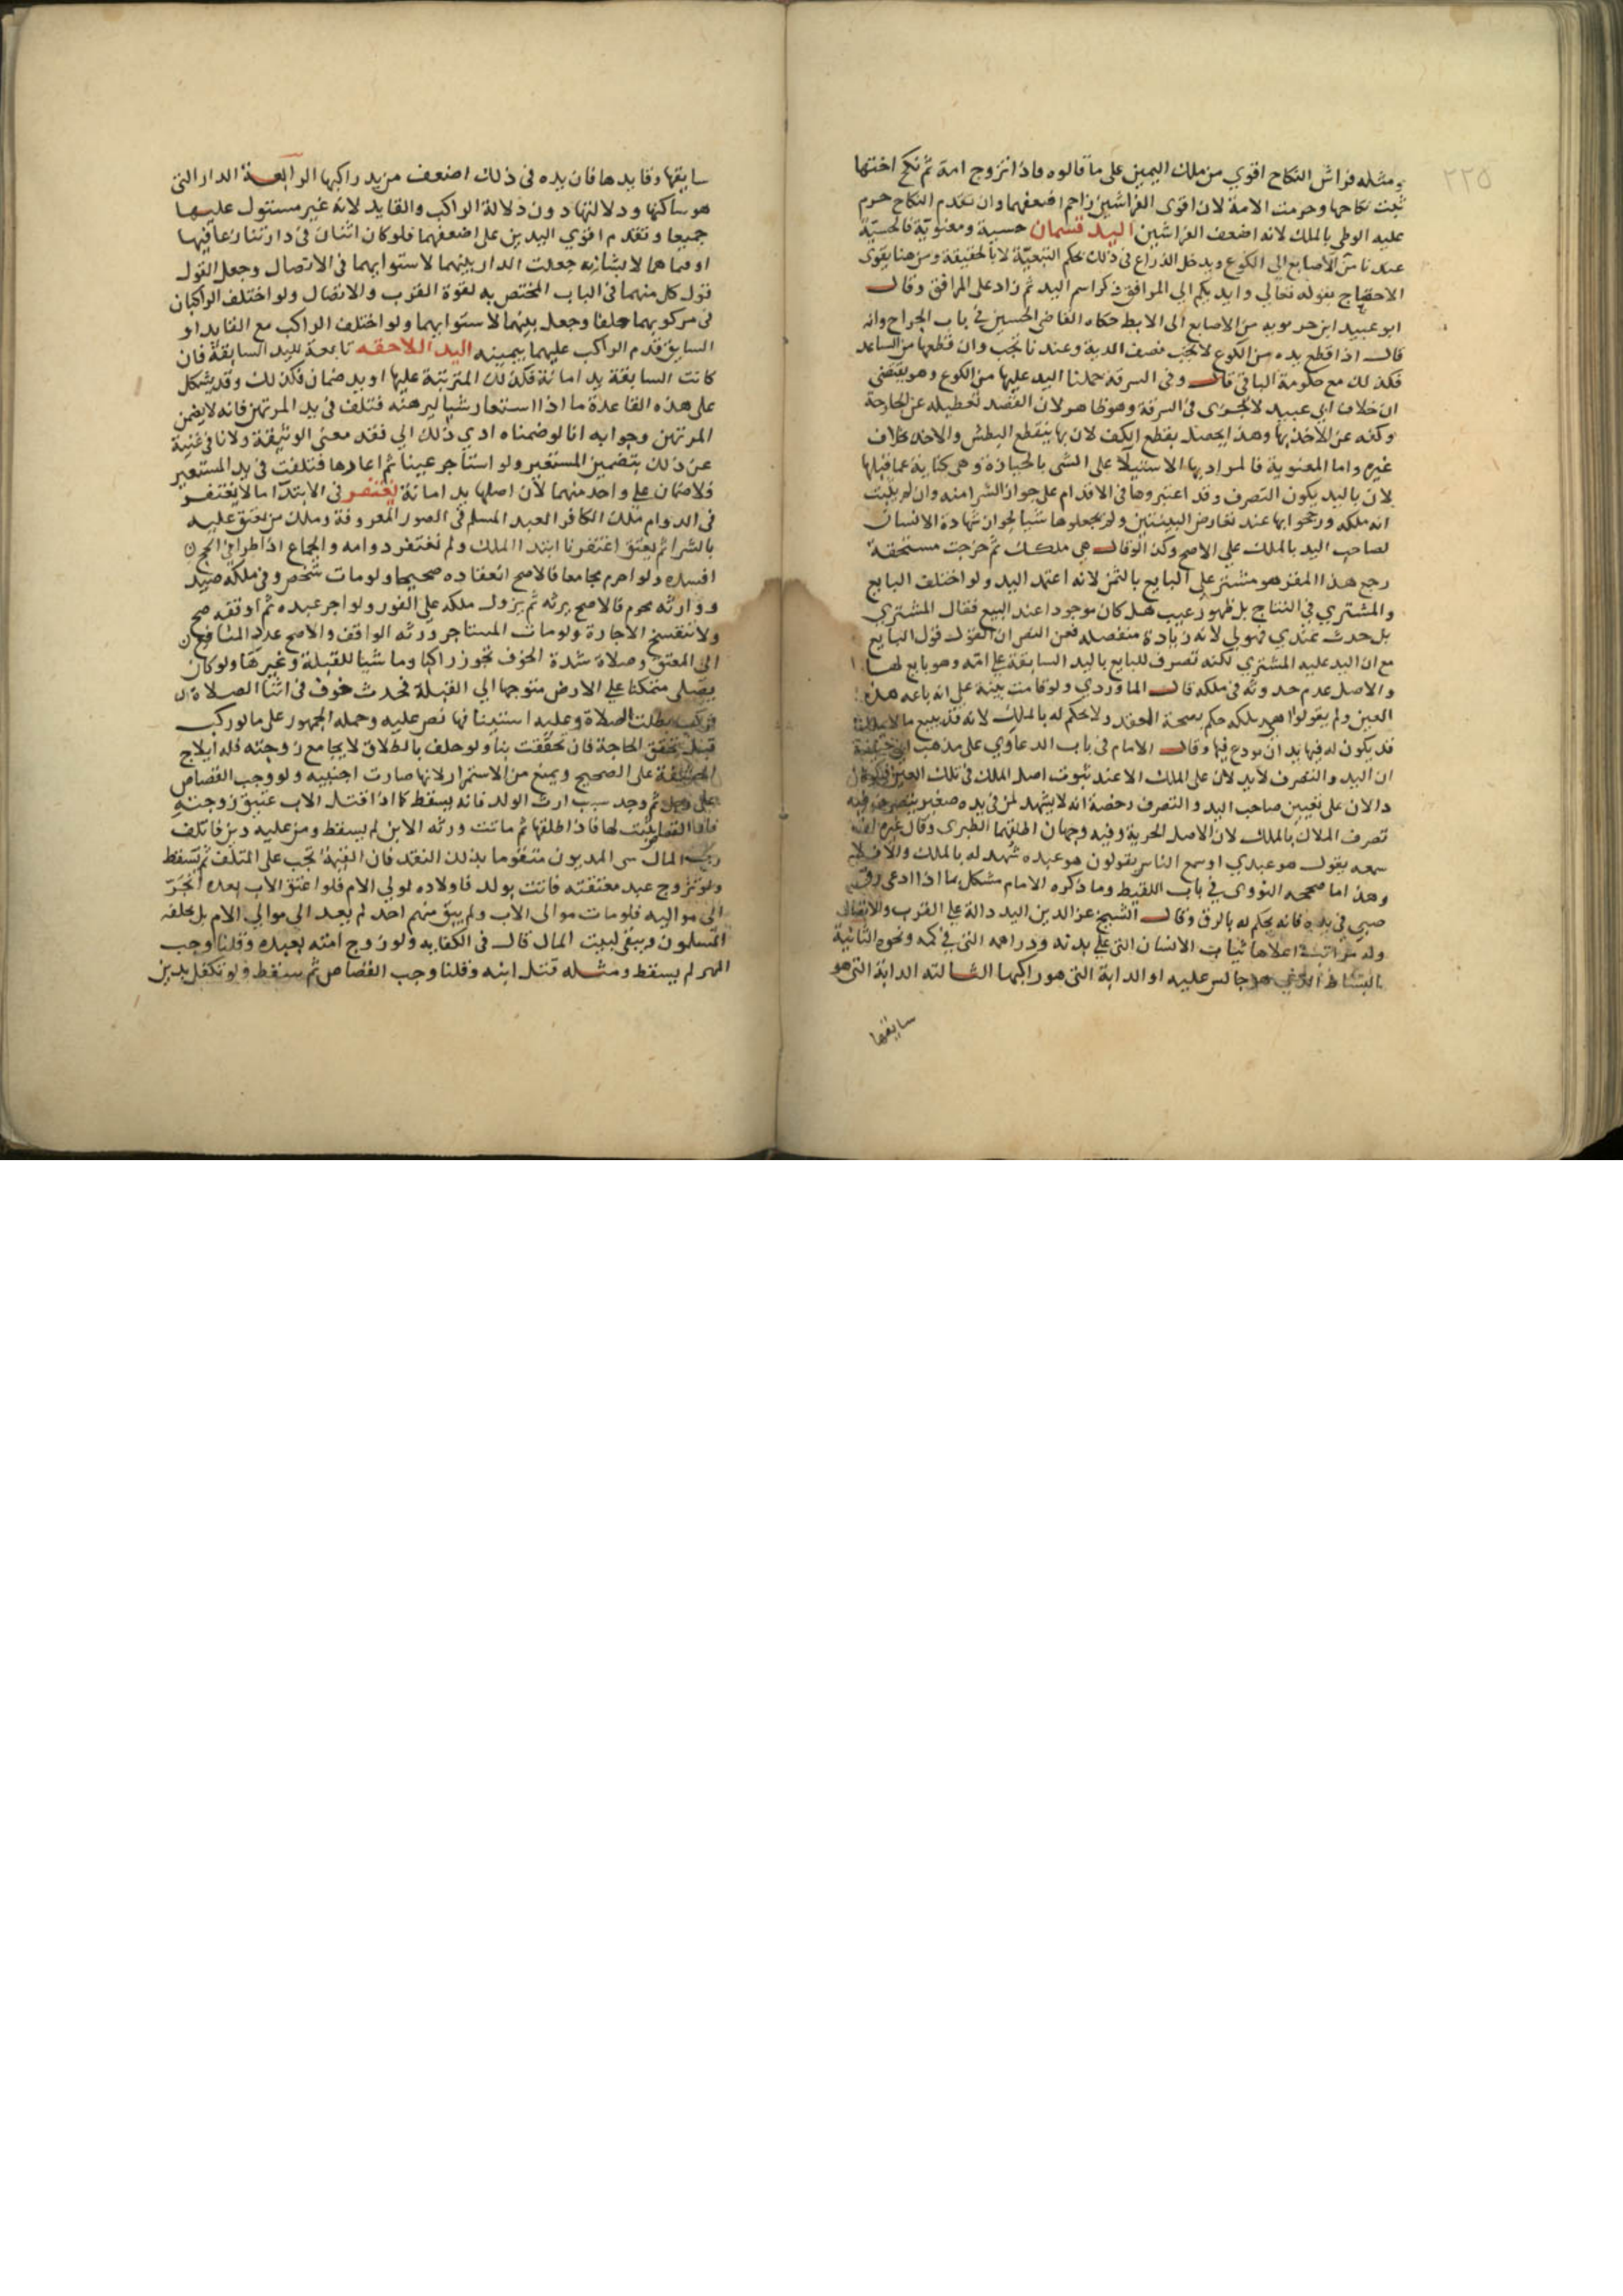 ٢٢٥
ومثله فراش النكاح اقوي من ملك اليمين على ما قالوه فاذا تزوج امة ثم نكح اختها
ثبت نكاحها وحرمت الامة لان اقوى الفراشين زاحم اضعفهما وان تقدم النكاح حرم
عليه الوطي بالملك لانه اضعف الفراشين اليد قسمان حسية ومعنوية فالحسية
عندنا من الاصابع الى الكوع ويدخل الذراع في ذلك بحكم التبعية لا بالحقيقة ومن هنا يقوى
الاحتجاج بقوله تعالي وايديكم الي المرافق ذكر اسم اليد ثم زاد على المرافق وقال
ابو عبيد ابن حربويه من الاصابع الى الابط حكاه القاضى الحسين في باب الجراح وانه
قال اذا قطع يده من الكوع لا يجب نصف الدية وعندنا تجب وان قطعها من الساعد
فكذلك مع حكومة الباقي قال وفى السرقة حملنا اليد عليها من الكوع وهو يقتضي
ان خلاف ابي عبيد لا يجري في السرقة وهو ظاهر لان القصد تعطيله عن الجارحة
وكفه عن الاخذ بها وهذا يحصل بقطع الكف لان بها ينقطع البطش والاخذ بخلاف
غيره واما المعنوية فالمراد بها الاستيلا على الشى بالحيازة وهى كناية عما قبلها
لان باليد يكون التصرف وقد اعتبروها في الاقدام على جواز الشرا منه وان لم يثبت
انه ملكه ورجحوا بها عند تعارض البينتين ولم يجعلوها شيا لجواز شهادة الانسان
لصاحب اليد بالملك على الاصح وكذا لو قال هي ملكك ثم خرجت مستحقة
رجع هذا المقر هو مشتر على البايع بالثمن لانه اعتمد اليد ولو اختلف البايع
والمشتري في النتاج بل ظهور عيب هل كان موجودا عند البيع فقال المشتري
بل حدث عندي فهو لي لانه زيادة منفصله فعن النص ان القول قول البايع
مع ان اليد عليه المشتري لكنه تصرف للبايع باليد السابقة على امه وهو بايع لها
والاصل عدم حدوثه في ملكه قال الماوردي ولو قامت بينة على انه باعه هذه
العين ولم يقولوا هي ملكه حكم بصحة العقد ولا يحكم له بالملك لانه قد يبيع ما لا يملك
قد يكون له فيها يد ان يودع فيها وقال الامام في باب الدعاوي على مذهب ابي حنيفة
ان اليد والتصرف لا يدلان على الملك الا عند ثبوت اصل الملك في تلك العين فيكونان
دالان على تعيين صاحب اليد والتصرف رخصة انه لا يشهد لمن في يده صغير يتصرف فيه
تصرف الملاك بالملك لان الاصل الحرية وفيه وجهان اطلقهما الطبرى وقال غيره انه
سمعه يقول هو عبدي او سمع الناس يقولون هو عبده شهد له بالملك والا فلا
وهذا ما صححه النووي في باب اللقيط وما ذكره الامام مشكل بما اذا ادعى رق
صبي في يده فانه يحكم له بالرق وقال الشيخ عز الدين اليد دالة على القرب والاتصال
وله مراتب اعلاها ثياب الانسان التي على بدنه ودراهمه التي في كمه ونحوه الثانية
البساط الذي هو جالس عليه او الدابة التى هو راكبها الثالثه الدابة التى هو
سايقها
سايقها وقايدها فان يده في ذلك اضعف من يد راكبها الرابعة الدار التى
هو ساكنها ودلالتها دون دلالة الراكب والقايد لانه غير مستول عليها
جميعا وتقدم اقوي اليدين على اضعفهما فلو كان اثنان في دار تنازعا فيها
او فيما هما لابسانه جعلت الدار بينهما لاستوايهما في الاتصال وجعل القول
قول كل منهما في الباب المختص به لقوة القرب والاتصال ولو اختلف الراكبان
في مركوبهما حلفا وجعل بينهما لاستوايهما ولو اختلف الراكب مع القايد او
السايق قدم الراكب عليهما بيمينه اليد اللاحقه تابعة لليد السابقة فان
كانت السابقة يد امانة فكذلك المترتبة عليها او يد ضمان فكذلك وقد يشكل
على هذه القاعدة ما اذا استعار شيا ليرهنه فتلف في يد المرتهن فانه لا يضمن
المرتهن وجوابه انا لو ضمناه ادي ذلك الي فقد معنى الوثيقة ولانا في غنية
عن ذلك بتضمين المستعير ولو استاجر عينا ثم اعارها فتلفت في يد المستعير
فلا ضمان على واحد منهما لان اصلها يد امانة يغتفر في الابتدا ما لا يغتفر
في الدوام ملك الكافر العبد المسلم في الصور المعروفة وملك من يعتق عليه
بالشرا ثم يعتق اغتفرنا ابتدا الملك ولم نغتفر دوامه والجماع اذا طرا على الحج
افسده ولو احرم مجامعا فالاصح انعقاده صحيحا ولو مات شخص وفي ملكه صيد
ووارثه محرم فالاصح يرثه ثم يزول ملكه على الفور ولو اجر عبده ثم اوقفه صح
ولا تنفسخ الاجارة ولو مات المستاجر ورثه الواقف والاصح عدد
الى المعتق وصلاة شدة الخوف تجوز راكبا وماشيا للقبلة وغيرها ولو كان
يصلى متمكنا على الارض متوجها الي القبلة فحدث خوف في اثنا الصلاة
فركب بطلت الصلاة وعليه استينافها نص عليه وحمله الجمهور على ما لو ركب
قبل تحقق الحاجة فان تحققت بنا ولو حلف بالطلاق لا يجامع زوجته فله ايلاج
الحشفة على الصحيح ويمنع من الاستمرار لانها صارت اجنبيه ولو وجب القصاص
على رجل ثم وجد سبب ارث الولد فانه يسقط كما اذا قتل الاب عتيق زوجته
فان القصاص ثبت لها فاذا طلقها ثم ماتت ورثه الابن لم يسقط ومن عليه دين فاتلف
رب المال شى المديون متقوما بذلك النقد فان القيمة تجب على المتلف ثم تسقط
ولو تزوج عبد معتقته فاتت بولد فاولاده لولي الام فلو اعتق الاب بعده انجر
الى مواليه فلو مات موالى الاب ولم يبق منهم احد لم يعد الى موالي الام بل يخلفه
المسلمون ويبقى لبيت المال قال في الكفايه ولو زوج امته بعبده وقلنا وجب
المهر لم يسقط ومثله قتل ابنه وقلنا وجب القصاص ثم سقط ولو تكفل بدين